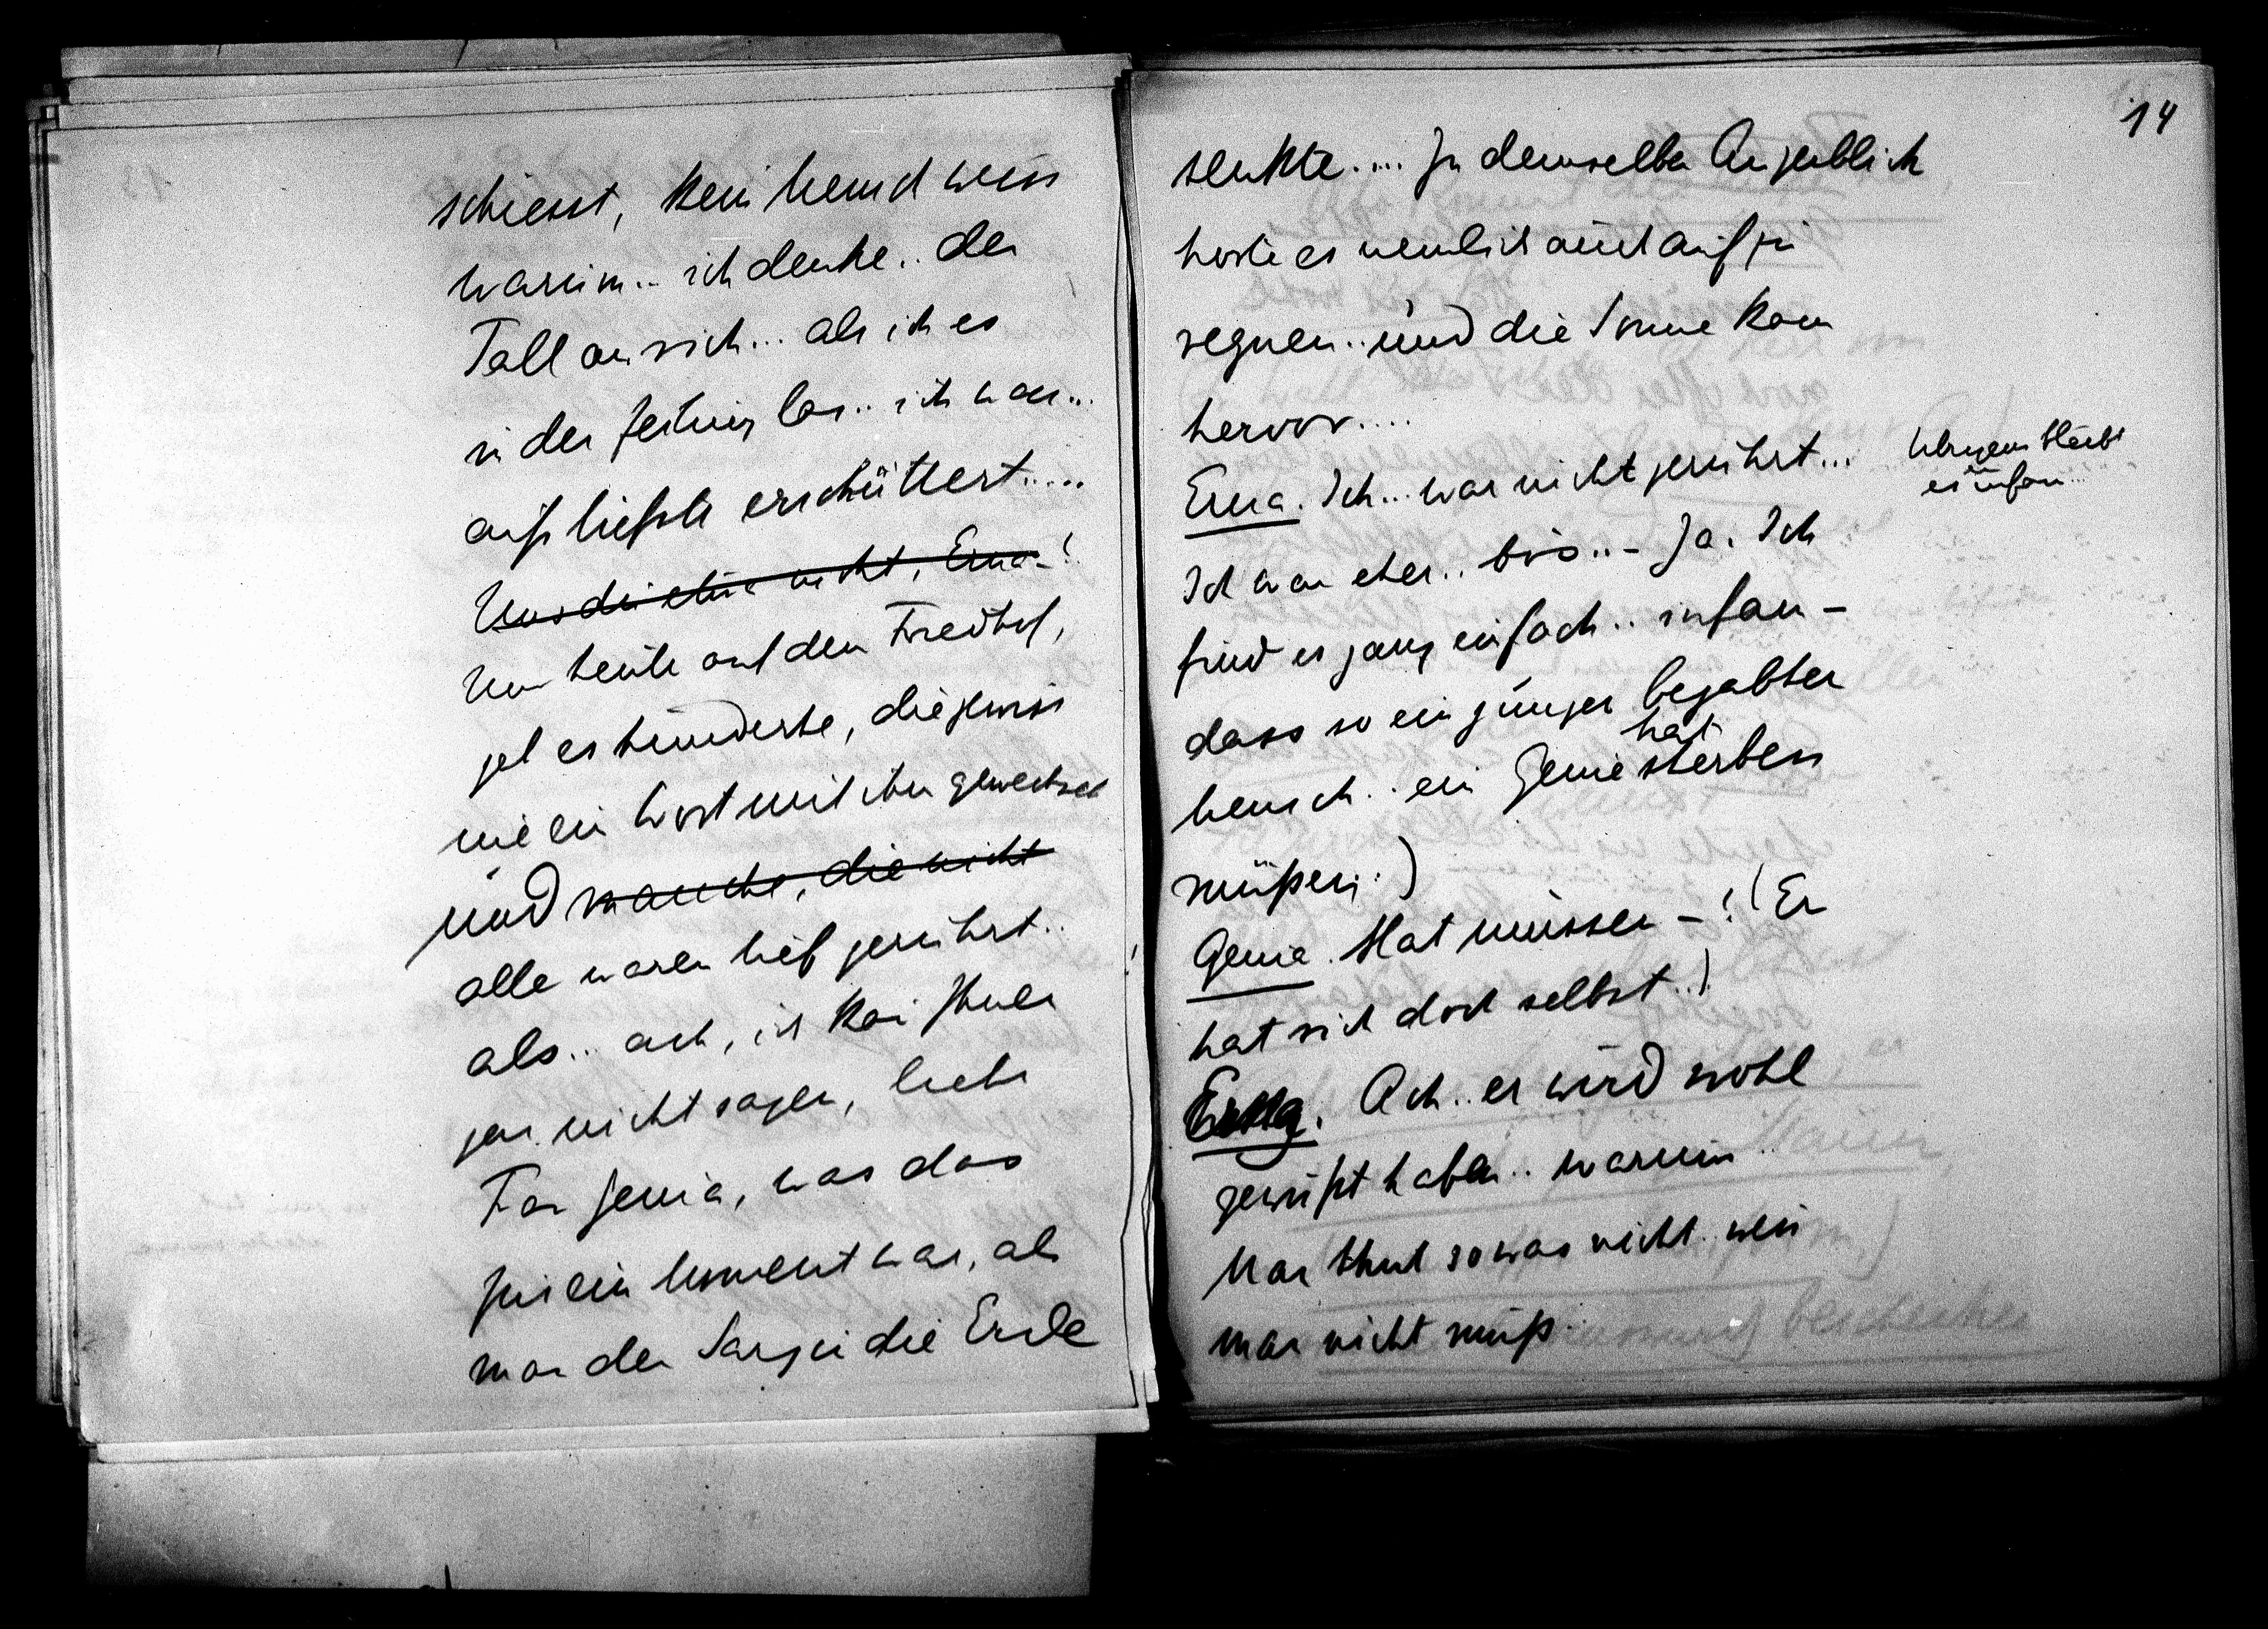 schiesst, kein Mensch weiss
warum.. ich denke.. der
Fall an sich... als ich es
in der Zeitung las.. ich war...
aufs tiefste erschüttert.....
Und heute auf dem Friedhof,
gab es hunderte, die gewiss
nie ein Wort mit ihm gewechselt
und manche, die nicht
alle waren tief gerührt..
als.. ach, ich kan Ihnen
gar nicht sagen, liebe
Frau Genia, was das
für ein Moment war, als
man den Sarg in die Erde
14
senkte..... In demselben Augenblick
hörte es nemlich auch auf zu
regnen.. und die Sonne kam
hervor....
Erna. Ich... war nicht gerührt...
Übrigens bleibt
es infam...
Ich war eher.. bös..- Ja. Ich
find es ganz einfach.. infam -
dass so ein junger begabter
hat
Mensch.. ein Genie sterben
müßen.)
Genia. Hat müssen -! (Er
hat sich doch selbst..)
Erna. Ach.. er wird wohl
gewußt haben.. warum..
Man thut so was nicht. wen
man nicht muß..